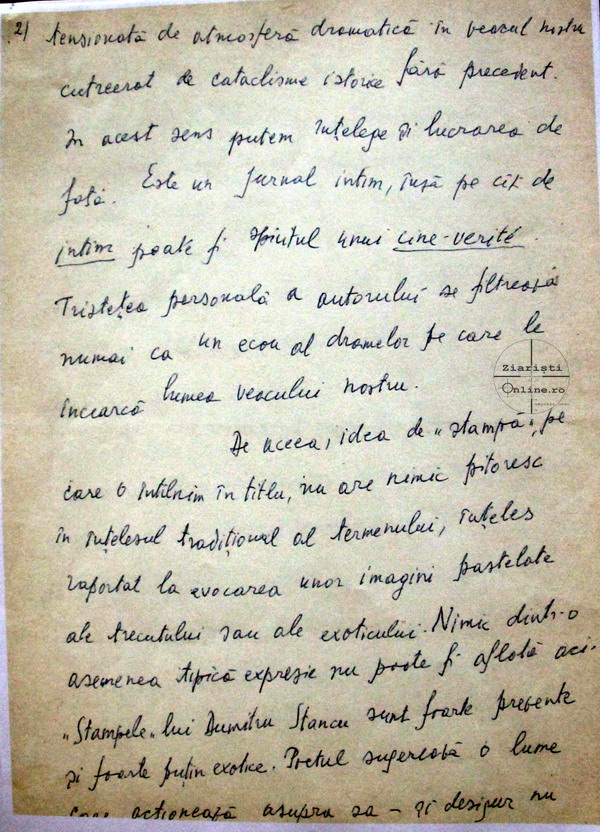 2) tensionată de atmosferă dramatică în veacul nostru
cutreerat de cataclisme istorice fără precedent.
In acest sens putem înțelege și lucrarea de
față. Este un jurnal intim, însă pe cît de
intim poate fi spiritul unui cine-verité.
Tristețea personală a autorului se filtrează
numai ca un ecou al dramelor pe care le
încearcă lumea veacului nostru.
Ziariști
Online.ro
De aceea, idea de „stampă”, pe
care o întîlnim în titlu, nu are nimic pitoresc
în înțelesul tradițional al termenului, înțeles
raportat la evocarea unor imagini pastelate
ale trecutului sau ale exoticului. Nimic dintr-o
asemenea tipică expresie nu poate fi aflată aci.
„Stampele” lui Dumitru Stancu sunt foarte prezente
și foarte puțin exotice. Poetul sugerează o lume
care acționează asupra sa – și desigur nu